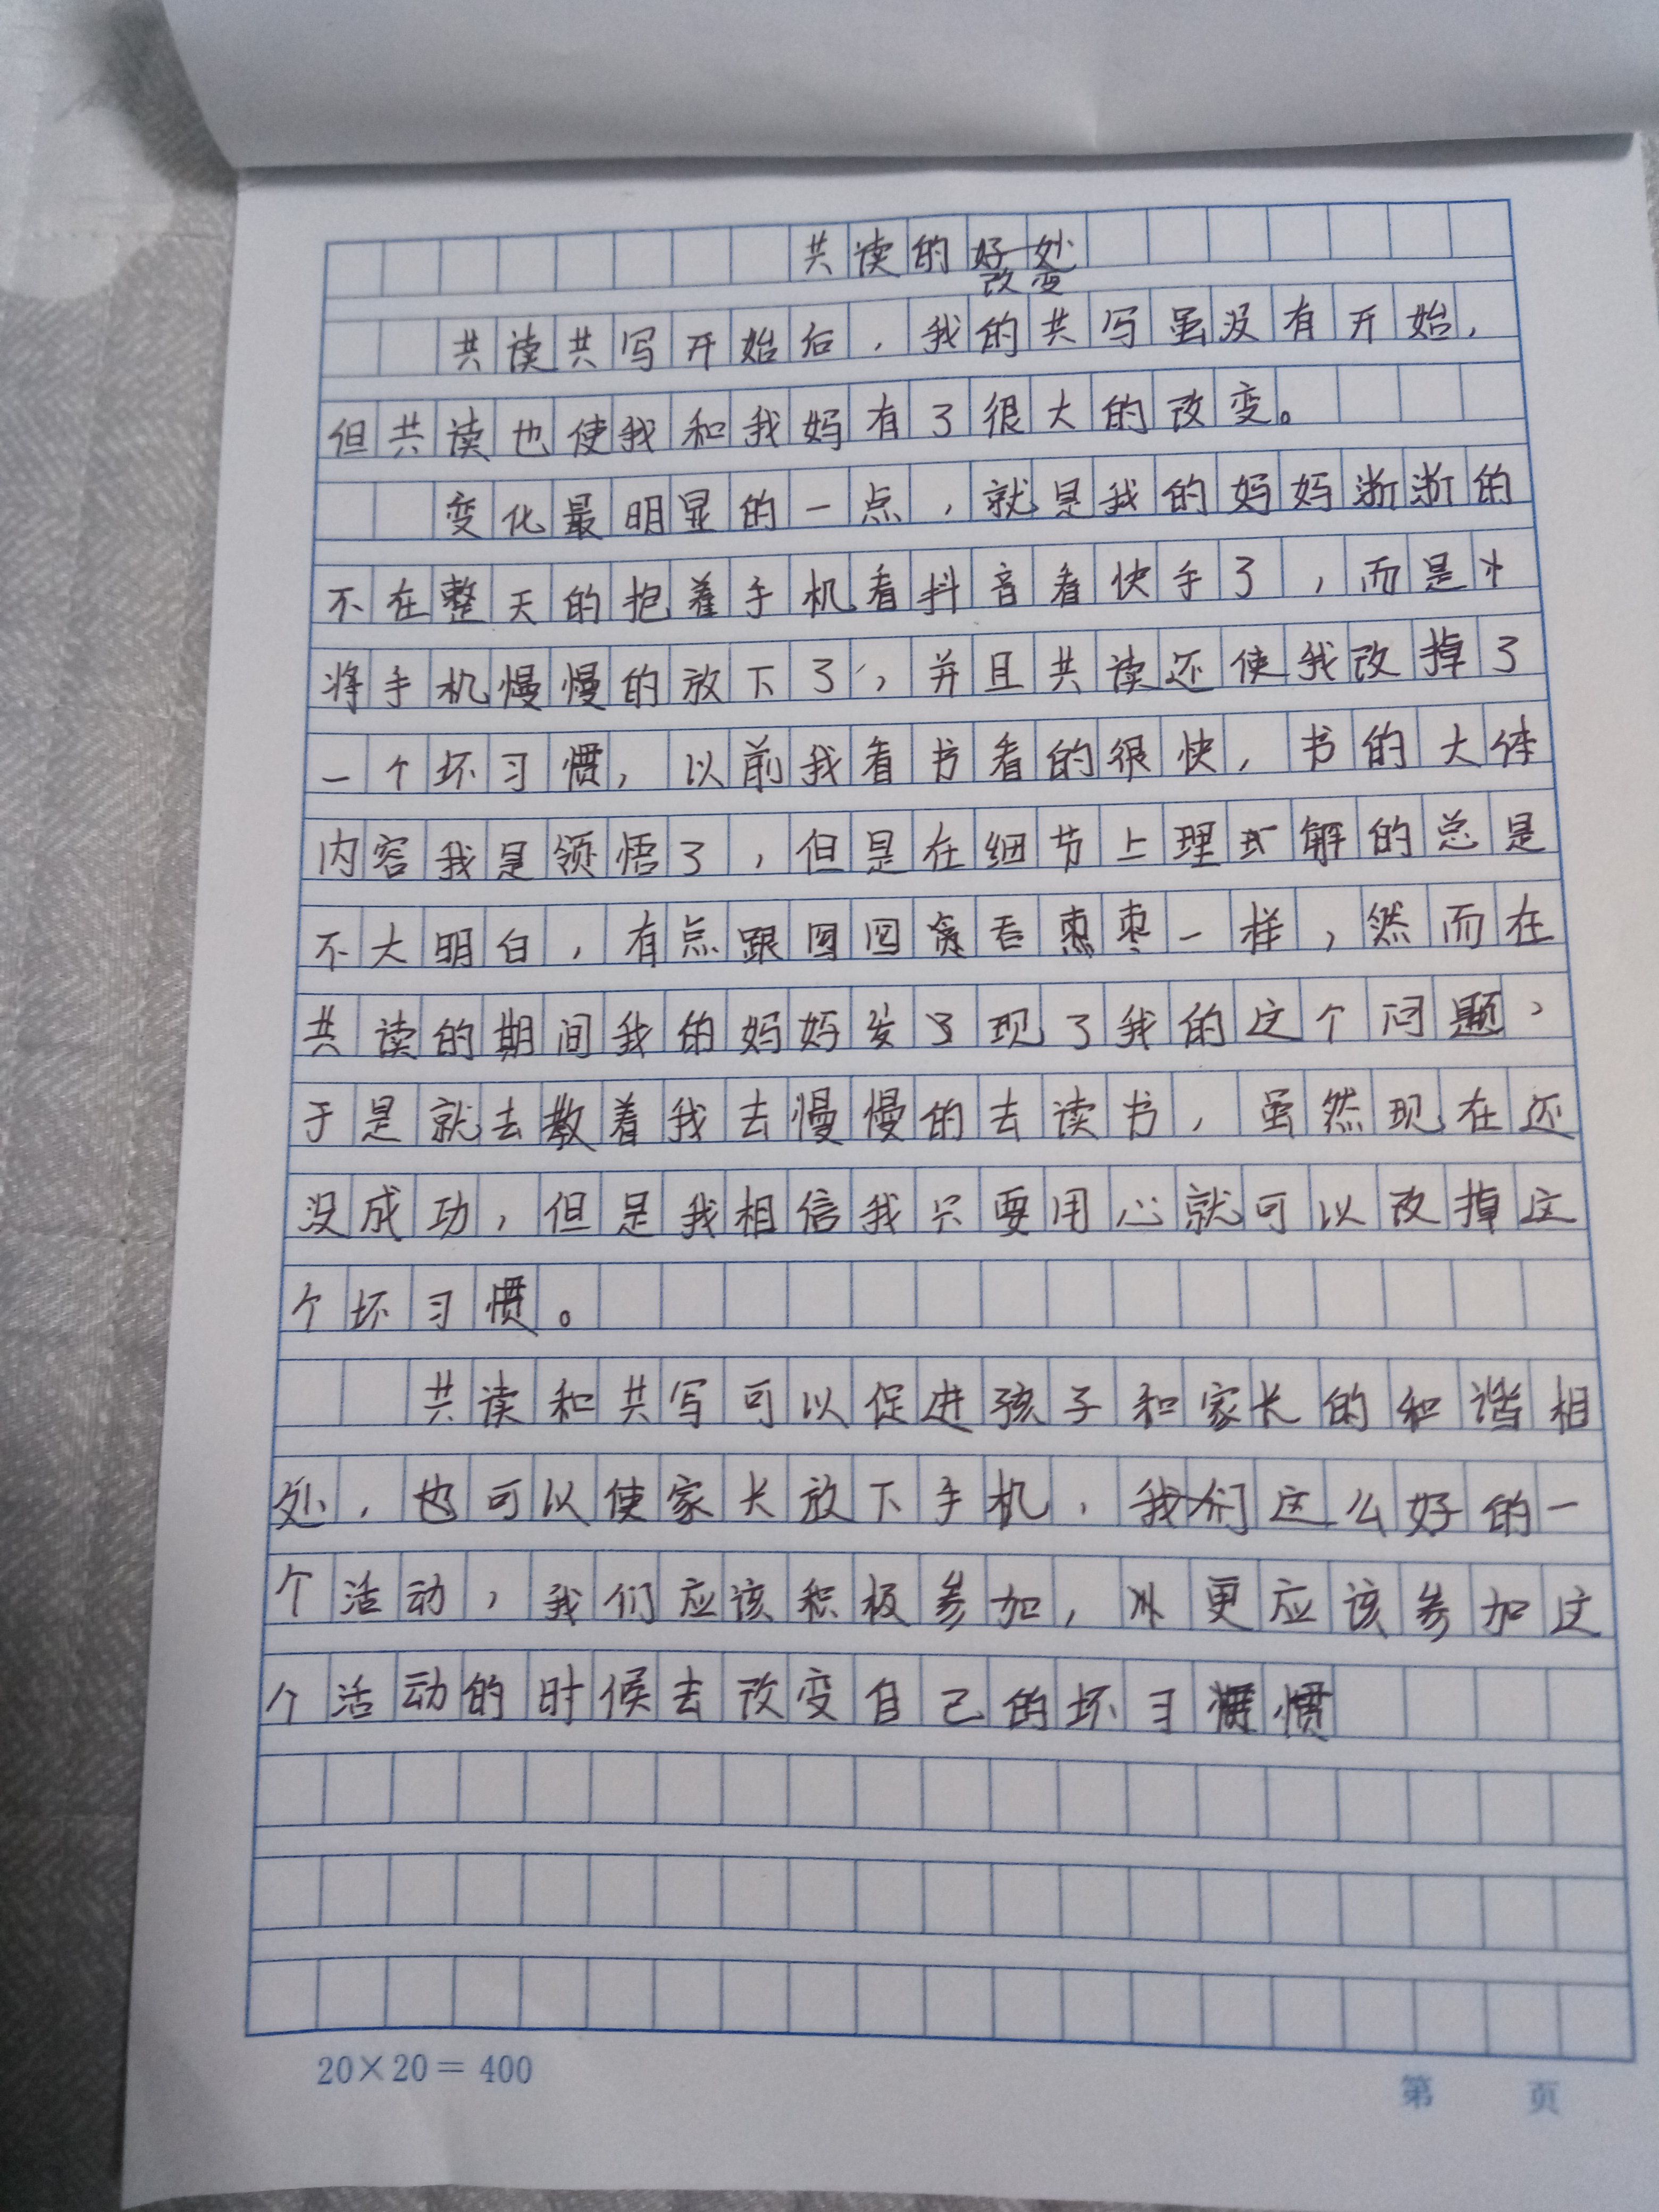 共读的好处
改变
共读共写开始后，我的共写虽没有开始，
但共读也使我和我妈有了很大的改变。
变化最明显的一点，就是我的妈妈渐渐的
不在整天的抱着手机看抖音看快手了，而是
将手机慢慢的放下了，并且共读还使我改掉了
一个坏习惯，以前我看书看的很快，书的大体
内容我是领悟了，但是在细节上理解的总是
不大明白，有点跟囫囵吞枣一样，然而在
共读的期间我的妈妈发现了我的这个问题，
于是就去教着我去慢慢的去读书，虽然现在还
没成功，但是我相信我只要用心就可以改掉这
个坏习惯。
共读和共写可以促进孩子和家长的和谐相
处，也可以使家长放下手机，我们这么好的一
个活动，我们应该积极参加，更应该参加这
个活动的时候去改变自己的坏习惯
20×20＝400
第 页